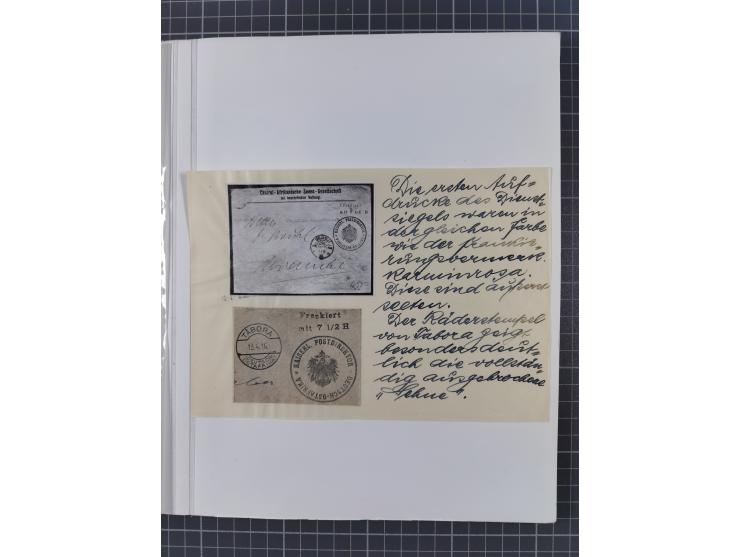 Central-Afrikanische Seeen-Gesellschaft
mit beschränkter Haftung.
Frankiert
mit 7 1/2 H
TABORA
13.4.16
KAISERL. POSTDIREKTOR DEUTSCH-OSTAFRIKA
Die ersten Auf=
drucke des Dienst=
siegels waren in
der gleichen Farbe
wie der Frankie=
rungsvermerk.
Karminrosa.
Diese sind außerst
selten.
Der Räderstempel
von Tabora zeigt
besonders deut=
lich die vollstän=
dig ausgebrochene
"Sehne".